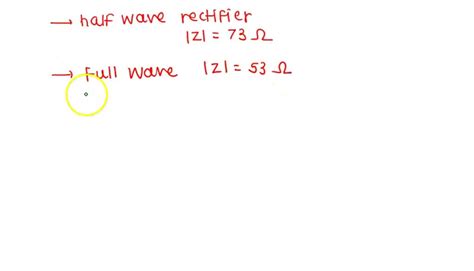 → half wave rectifier
|z| = 73 Ω
→ Full wave |z| = 53 Ω